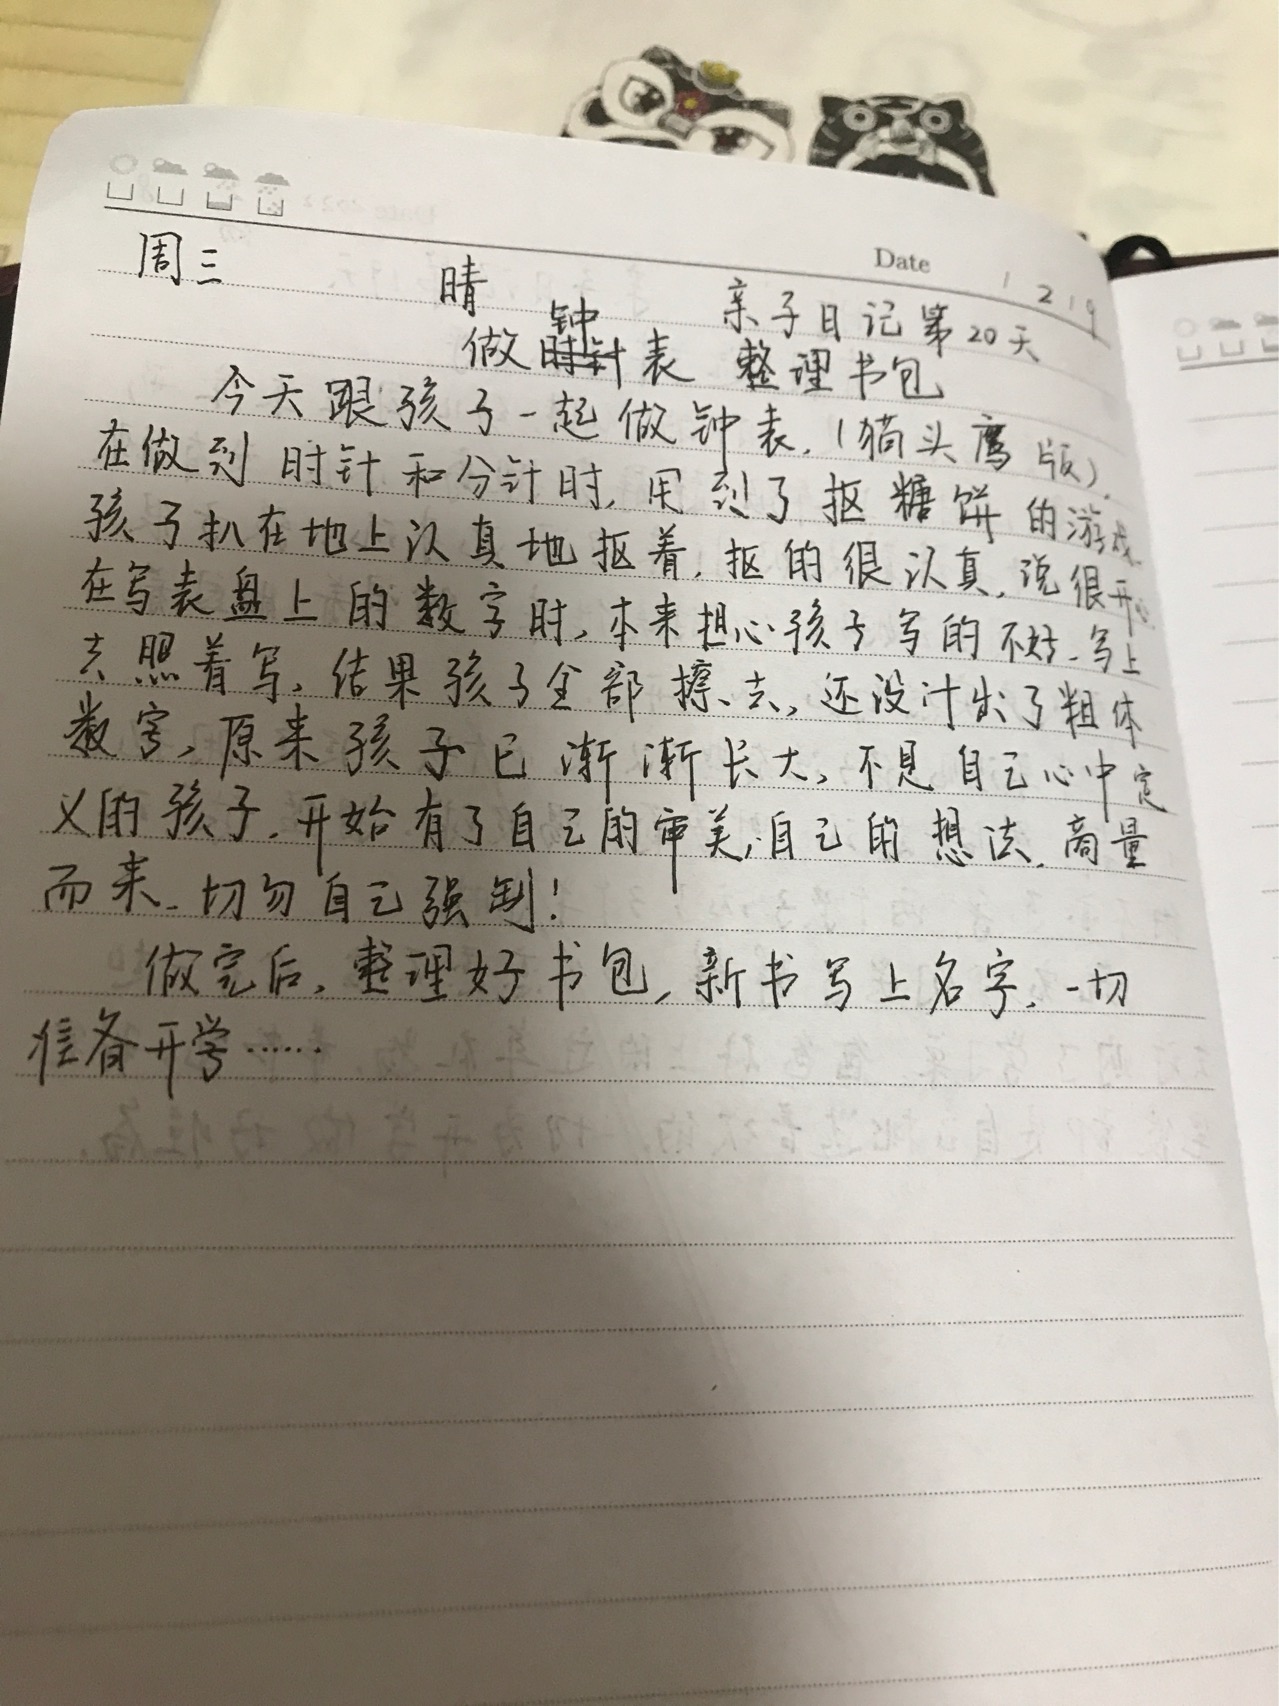 Date
周三 晴 亲子日记第20天
做钟表 整理书包
今天跟孩子一起做钟表,(猫头鹰版).
在做到时针和分针时,用到了抠糖饼的游戏.
孩子扒在地上认真地抠着,抠的很认真,说很开心
在写表盘上的数字时,本来担心孩子写的不好,写上
去照着写,结果孩子全部擦去,还设计出了粗体
数字,原来孩子已渐渐长大,不是自己心中定
义的孩子,开始有了自己的审美,自己的想法,商量
而来,切勿自己强制!
做完后,整理好书包,新书写上名字,一切
准备开学……